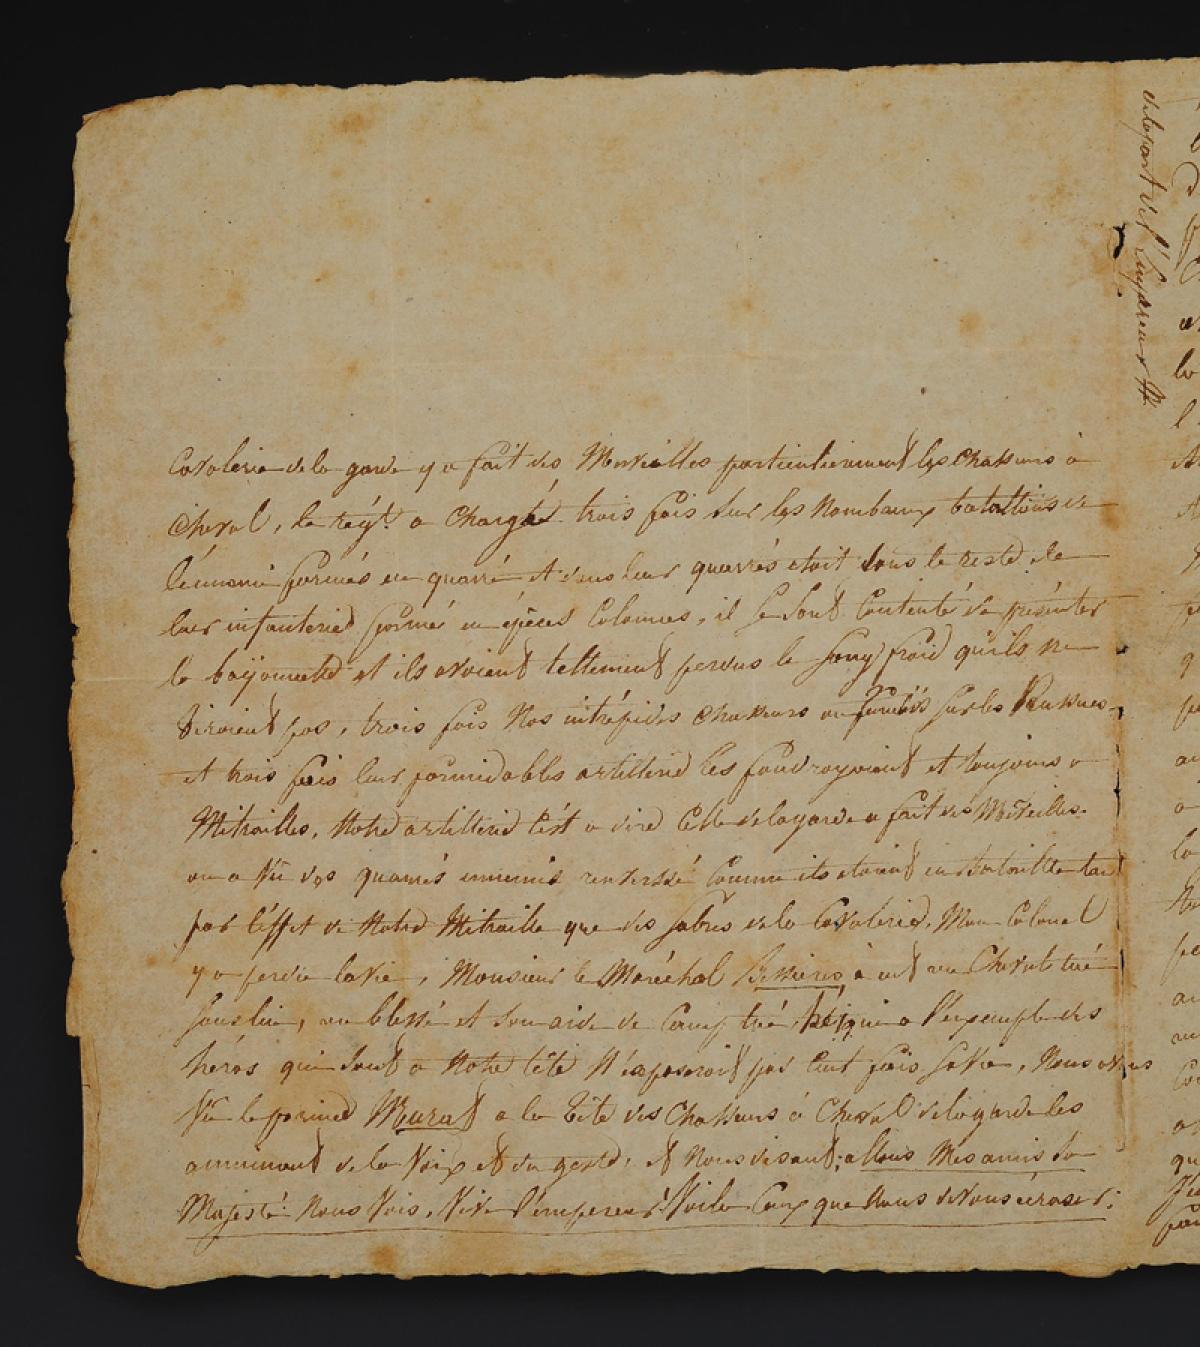 Cavalerie de la garde y a fait des Merveilles particulierement les chasseurs a
cheval, le régt. a chargé trois fois sur les nombreux bataillons de
l'énnemi formés en quarré et dans leur quarrés etoit tous le reste de
leur infanterie formé en Colonnes, il se sont Contenté de présenter
la bayonnette et ils avoient tellement perdus le sang froid qu'ils ne
tiroient pas, trois fois Nos intrépides chasseurs on sur les Russes
et trois fois leur formidables artillerie les foudroyoient et toujours a
Mitrailles, Notre artillerie C'est a dire Celle de la garde a fait des Merveilles.
on a Vû des quarrés ennemis renversé Comme ils etoient en Bataille tan
par l'éffet de Notre Mitraille que des sabres de la Cavalerie. Mon Colonel
y a perdu la vie, Monsieur le Maréchal Bessieres a eut un Cheval tué
sous lui, un blessé et son aide de Camp tué, qui a l'exemple des
héros qui sont a Notre tête N'exposeroit pas Cent fois sa Vie, Nous avons
Vû le prince Murat a la tête des Chasseurs à Cheval de la garde les
animant de la Voix et du geste, et Nous disant; allons Mes amis sa
Majesté Nous Vois, Vive l'émpereur Voila Ceux que Nous devons écraser:
de la part de l'Empereur